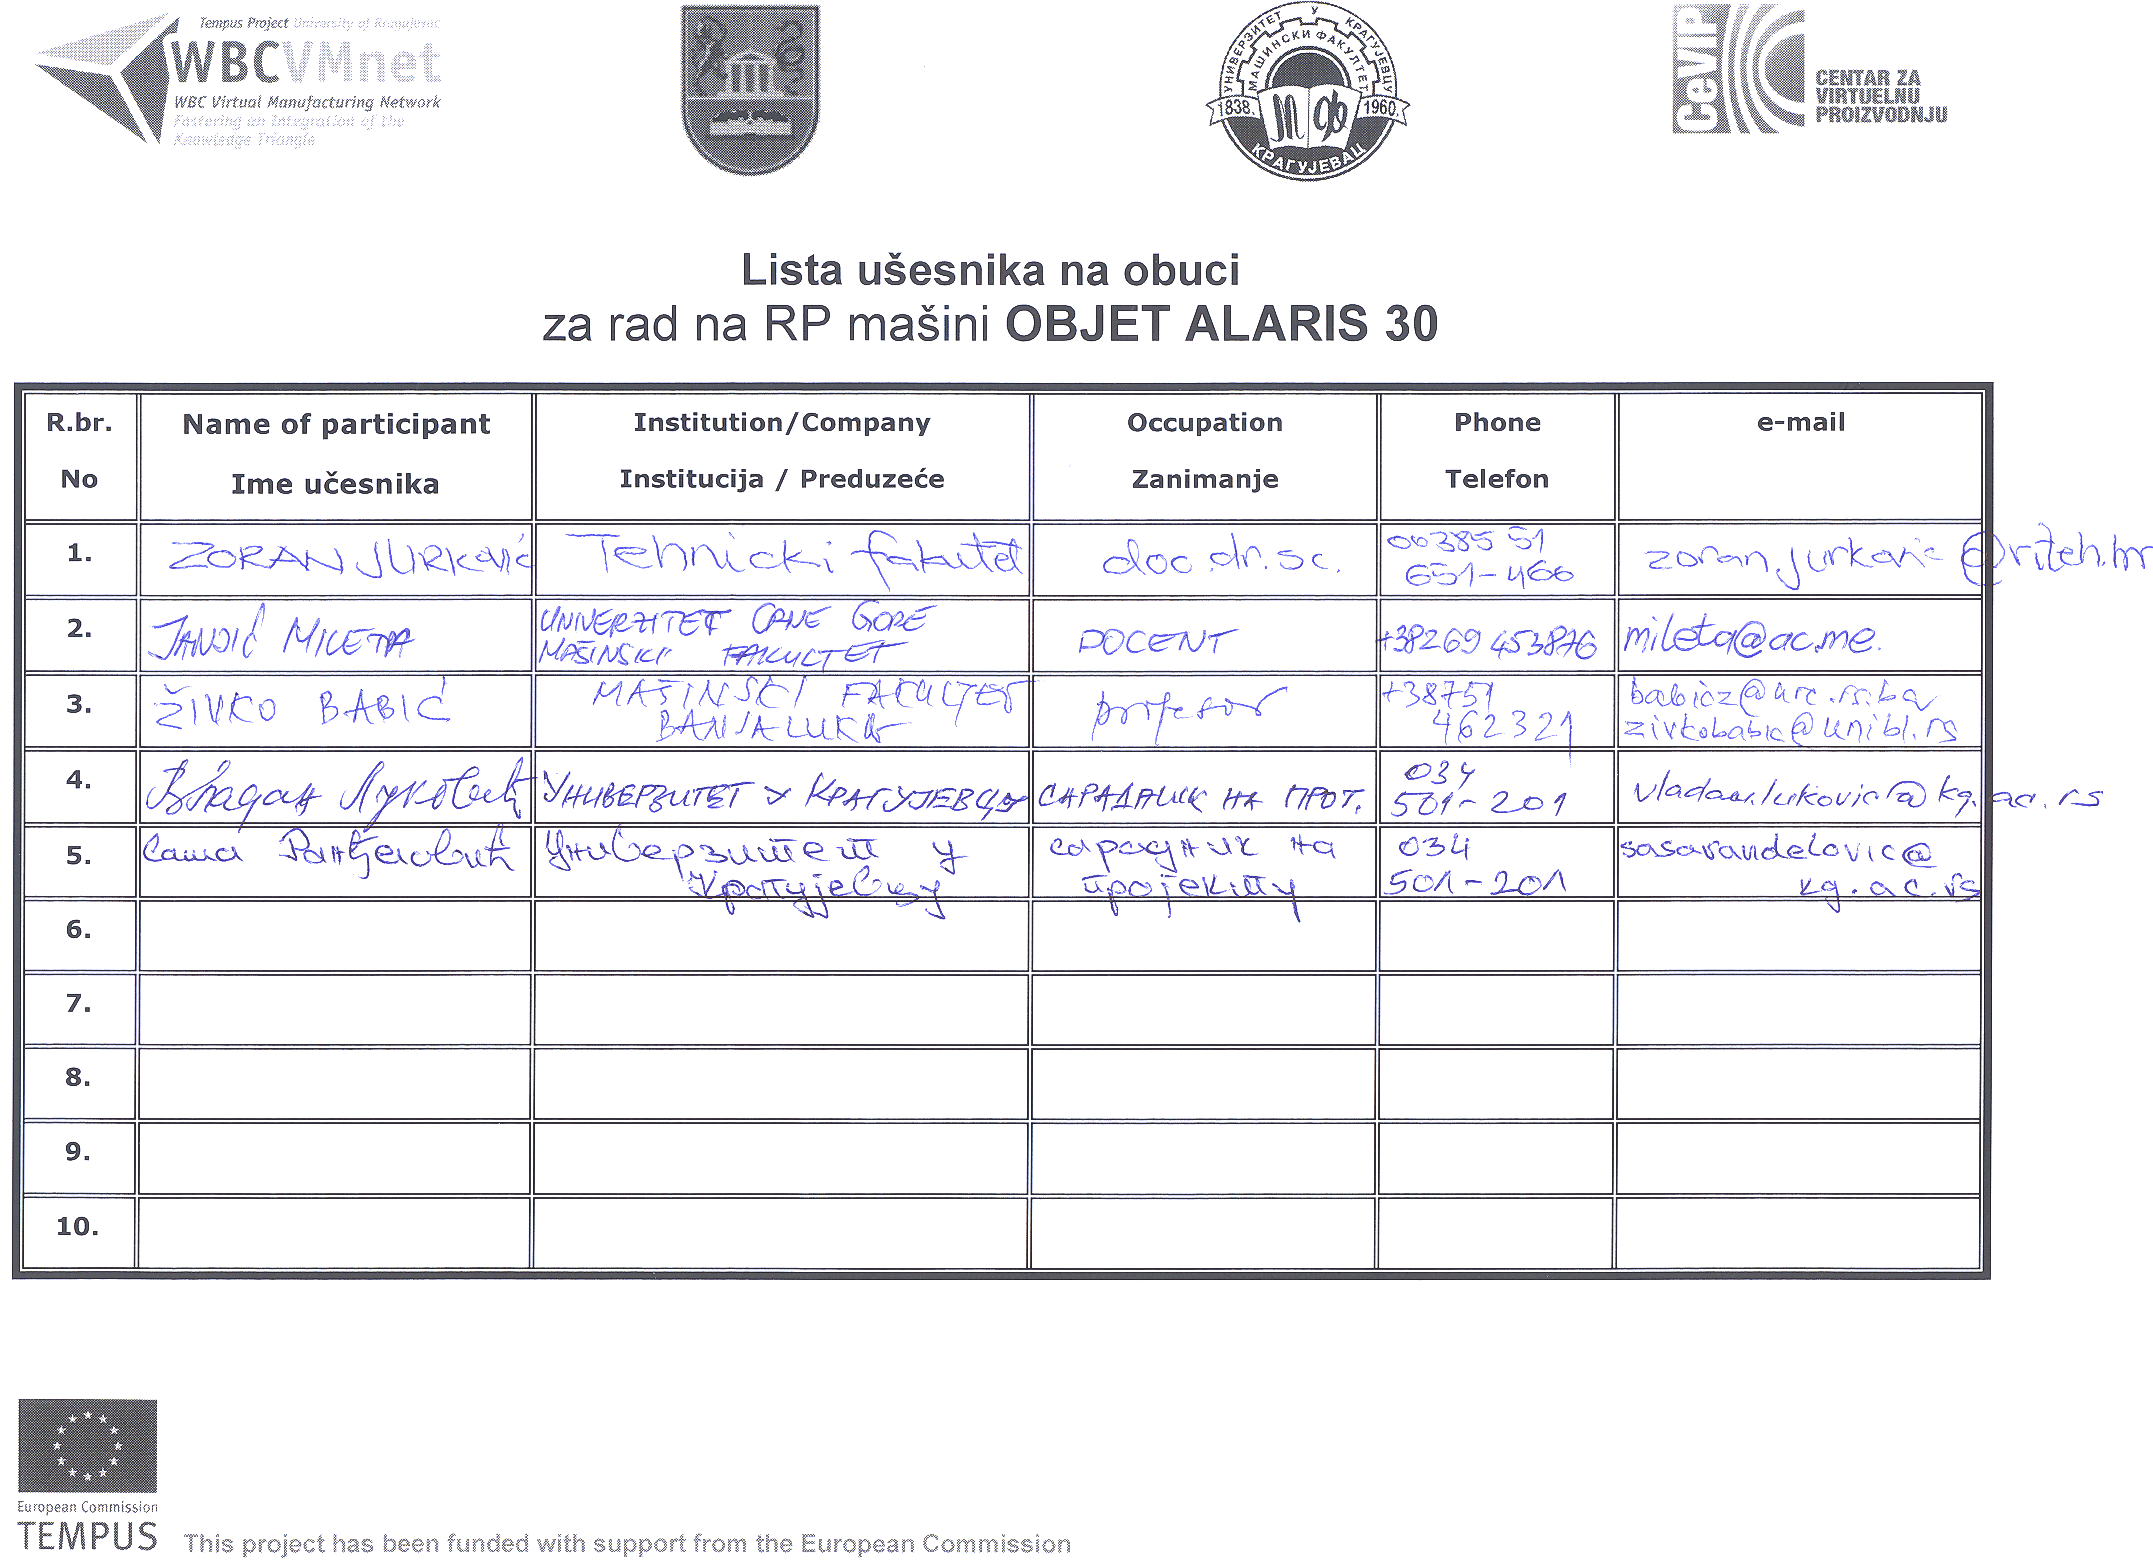 Tempus Project University of Kragujevac
WBCVMnet
WBC Virtual Manufacturing Network
Fostering an Integration of the
Knowledge Triangle
УНИВЕРЗИТЕТ У КРАГУЈЕВЦУ
МАШИНСКИ ФАКУЛТЕТ
1838. 1960.
КРАГУЈЕВАЦ
CeViP
CENTAR ZA
VIRTUELNU
PROIZVODNJU
Lista ušesnika na obuci
za rad na RP mašini OBJET ALARIS 30
R.br. Name of participant Institution/Company Occupation Phone e-mail
No Ime učesnika Institucija / Preduzeće Zanimanje Telefon
1. ZORAN JURKović Tehnički fakultet doc.dr.sc. 0038551 zoran.jurkovic@riteh.hr
651-466
2. JANJIĆ MILETA UNIVERZITET CRNE GORE DOCENT +38269 453876 mileta@ac.me.
MAŠINSKI FAKULTET
3. ŽIVKO BABIĆ MAŠINSKI FAKULTET profesor +38751 babicz@urc.rs.ba
BANJALUKA 462321 zivkobabic@unibl.rs
4. Владан Луковић УНИВЕРЗИТЕТ У КРАГУЈЕВЦУ САРАДНИК НА ПРОТ. 034 vladan.lukovic@kg.ac.rs
501-201
5. Саша Ранђеловић Универзитет у сарадник на 034 sasarandelovic@
Крагујевцу пројекту 501-201 kg.ac.rs
6.
7.
8.
9.
10.
European Commission
TEMPUS This project has been funded with support from the European Commission